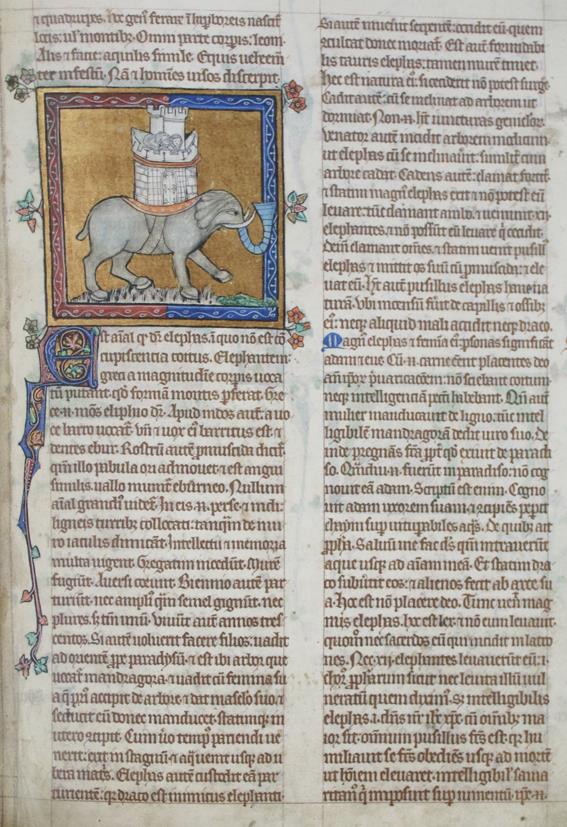 quadrupes. hoc gen⁹ ferar̄ i hiꝑboreis nascit̄
locis ul' montibꝫ. Omni parte corpis leoni.
Alis ⁊ facie aquilis simile. Equis uehem̄
ter infestū. Nā ⁊ homīes uisos discerpit.
Est aīal qḋ dr̄ elephas. i quo nō est cō
cupiscencia coitus. Elephantem
greci a magnitudīe corpis uocatū
putant. qḋ formam montis p̄ferat. Gre
ce. n. mōs eliphio dr̄. Apud indos aut̄ a uo
ce barro uocat̄. vn̄ ⁊ uox ei⁹ barritus est. ⁊
dentes ebur. Rostrū aut̄ pmuscida dicit̄
qm̄ illo pabula ori admouet. ⁊ est angui
similis. uallo munit̄ eburneo. Nullum
aīal grandi⁹ uidet̄. In eis. n. perse ⁊ indi
ligneis turribꝫ collocati. tanqīm de mu
ro iaculis dimicāt. Intellectu ⁊ memoria
multa uigent. Gregatim incedūt. Murē
fugiūt. Auersi coeunt. Biennio autē par
turiūt. nec ampli⁹ qm̄ semel gignūt. nec
plures. sꝫ tm̄ unū. Viuūt aut̄ annos tre
centos. Si autē uoluerit facere filios. uadit
ad orientē ꝓpe paradysū. ⁊ est ibi arbor que
uocat̄ mandragora. ⁊ uadit cū femina sua
q̄ p̄us accipit de arbore. ⁊ dat masclo suo. ⁊
seducit eū donec manducet. statimqꝫ in
utero cōcipit. Cum ū̄o temp⁹ pariendi ue
nerit. exit in stagnū. ⁊ aq̄ uenit usqꝫ ad u
bera matris. Elephas autē custodit eā par
turientē. qꝛ draco est inimicus elephanti.
Si autē inuenit serpentē. occidit eū. quem
cōculcat donec moriat̄. Est aut̄ formidabi
lis tauris elephas. tamen murē timet.
hec est natura ei⁹. si ceciderit nō potest surge
Cadit autē. cū se inclinat ad arborem ut
dormiat. Non. n. ht̄ iuncturas genicloꝝ.
Venator autē incidit arborem modicum
ut elephas cū se inclinauit. simlit̄ cum
arbore cadat. Cadens autē. clamat fortit̄
⁊ statim magn⁹ elephas exit. ⁊ nō potest eū
leuare. tūc clamant ambo. ⁊ ueniunt. xij.
elephantes. ⁊ nō possūt eū leuare q̄ cecidit.
dein̄ clamant om̄es. ⁊ statim uenit pusill⁹
elephas. ⁊ mittit os suū cū pmuscida. ⁊ ele
uat eū. Ht̄ aut̄ pusillus elephas hanc na
turā. vbi incensū fūit de capillis ⁊ ossibꝫ
ei⁹. neqꝫ aliquid mali accidit neqꝫ draco.
Magn⁹ elephas ⁊ femīa ei⁹. ꝑsonas significāt
adam ⁊ eue. Cū. n. carne eēnt placentes deo
an̄ ip̄oꝝ p̄uaricac̄oem. nō sciebant coitum.
neqꝫ intelligenciā peccati habebant. Qn̄ aut̄
mulier manducauit de ligno. tūc intel
ligibilē mandragoram dedit uiro suo. de
inde pregnās facta. ꝓpt̄ qḋ exiuit de paradi
so. Quamdiu. n. fuerūt in paradiso. nō cog
nouit eā adam. Scriptū est enim. Cogno
uit adam uxorem suam. ⁊ concipiēs peꝑit
chaym suꝑ uituꝑabiles aq̄s. De quibꝫ ait
ꝓph̄a. Saluū me fac ds̄. qm̄ intrauerūt
aque usqꝫ ad aīam meā. Et statim dra
co subūtit eos. ⁊ alienos fecit ab arce su
a. hec est nō placere deo. Tunc uen̄ mag
nus elephas. hoc est lex. ⁊ nō eum leuauit.
quom̄ nec sacerdos eū qui incidit in latro
nes. Nec. xij. elephantes leuauerūt eū. i.
chor⁹ ꝓphetarum. sicut nec leuita illū uul
neratū quem diximꝰ. sꝫ intelligibilis
elephas. i. dn̄s nr̄ ih̄c xp̄c. cū om̄ibꝫ ma
ior sit. omnium pusillus fc̄s est. qꝛ hu
miliauit se fc̄s obediēs usqꝫ ad mortē
ut hom̄em eleuaret. intelligibil' sama
ritan⁹ q̄ imposuit suꝑ iumentū. ip̄e. n.